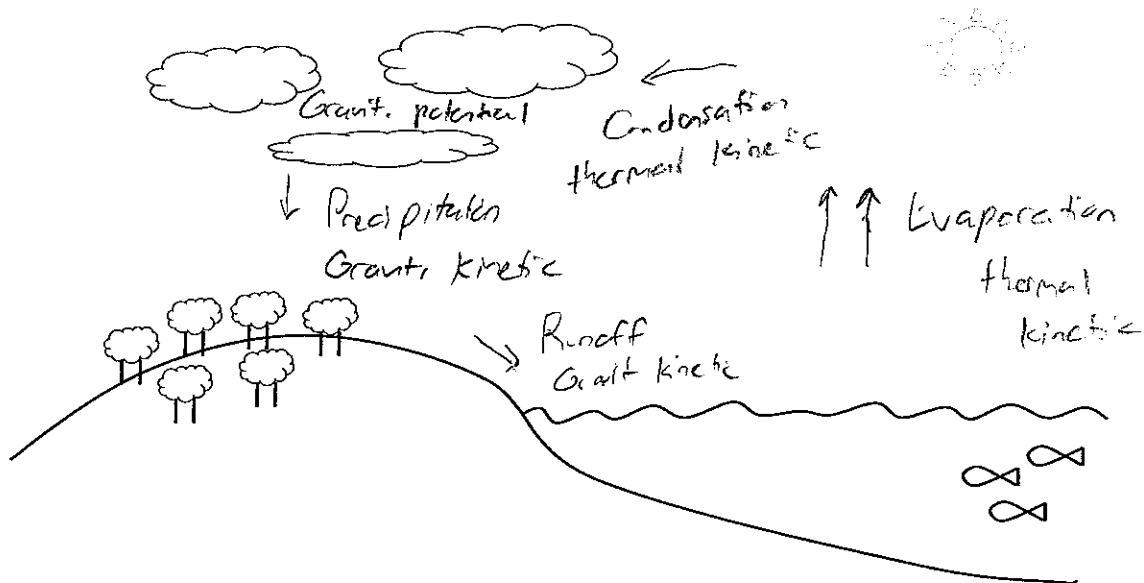 Gravit. potential
Condensation
thermal kinetic
Precipitation
Gravit. kinetic
Evaporation
thermal
kinetic
Runoff
Gravit kinetic